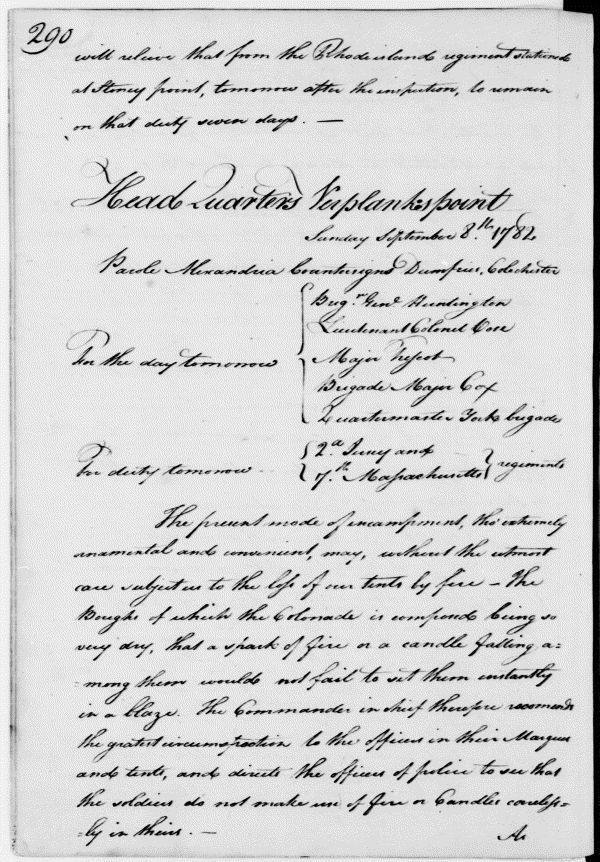 290
will relieve that from the Rhode island regiment stationed
at Stoney point, tomorrow after the inspection, to remain
on that duty seven days. —
Head Quarters Verplanks point
Sunday September 8.th 1782
Parole Alexandria Countersigns Dumfries, Colchester
For the day tomorrow
Brig.r Gen.l Huntington
Lieutenant Colonel
Major Trescot
Brigade Major Cox
Quartermaster York brigade
For duty tomorrow
2.d Jersey and
7.th Massachusetts
regiments
The present mode of encampment, tho' extremely
ornamental and convenient, may, without the utmost
care subject us to the loss of our tents by fire — The
Boughs of which the Colonade is composed being so
very dry, that a spark of fire or a candle falling a=
=mong them would not fail to set them instantly
in a blaze. The Commander in chief therefore recomends
the gratest circumspection to the officers in their Marquees
and tents, and directs the officers of police to see that
the soldiers do not make use of fire or Candles careless=
=ly in theirs. —
As